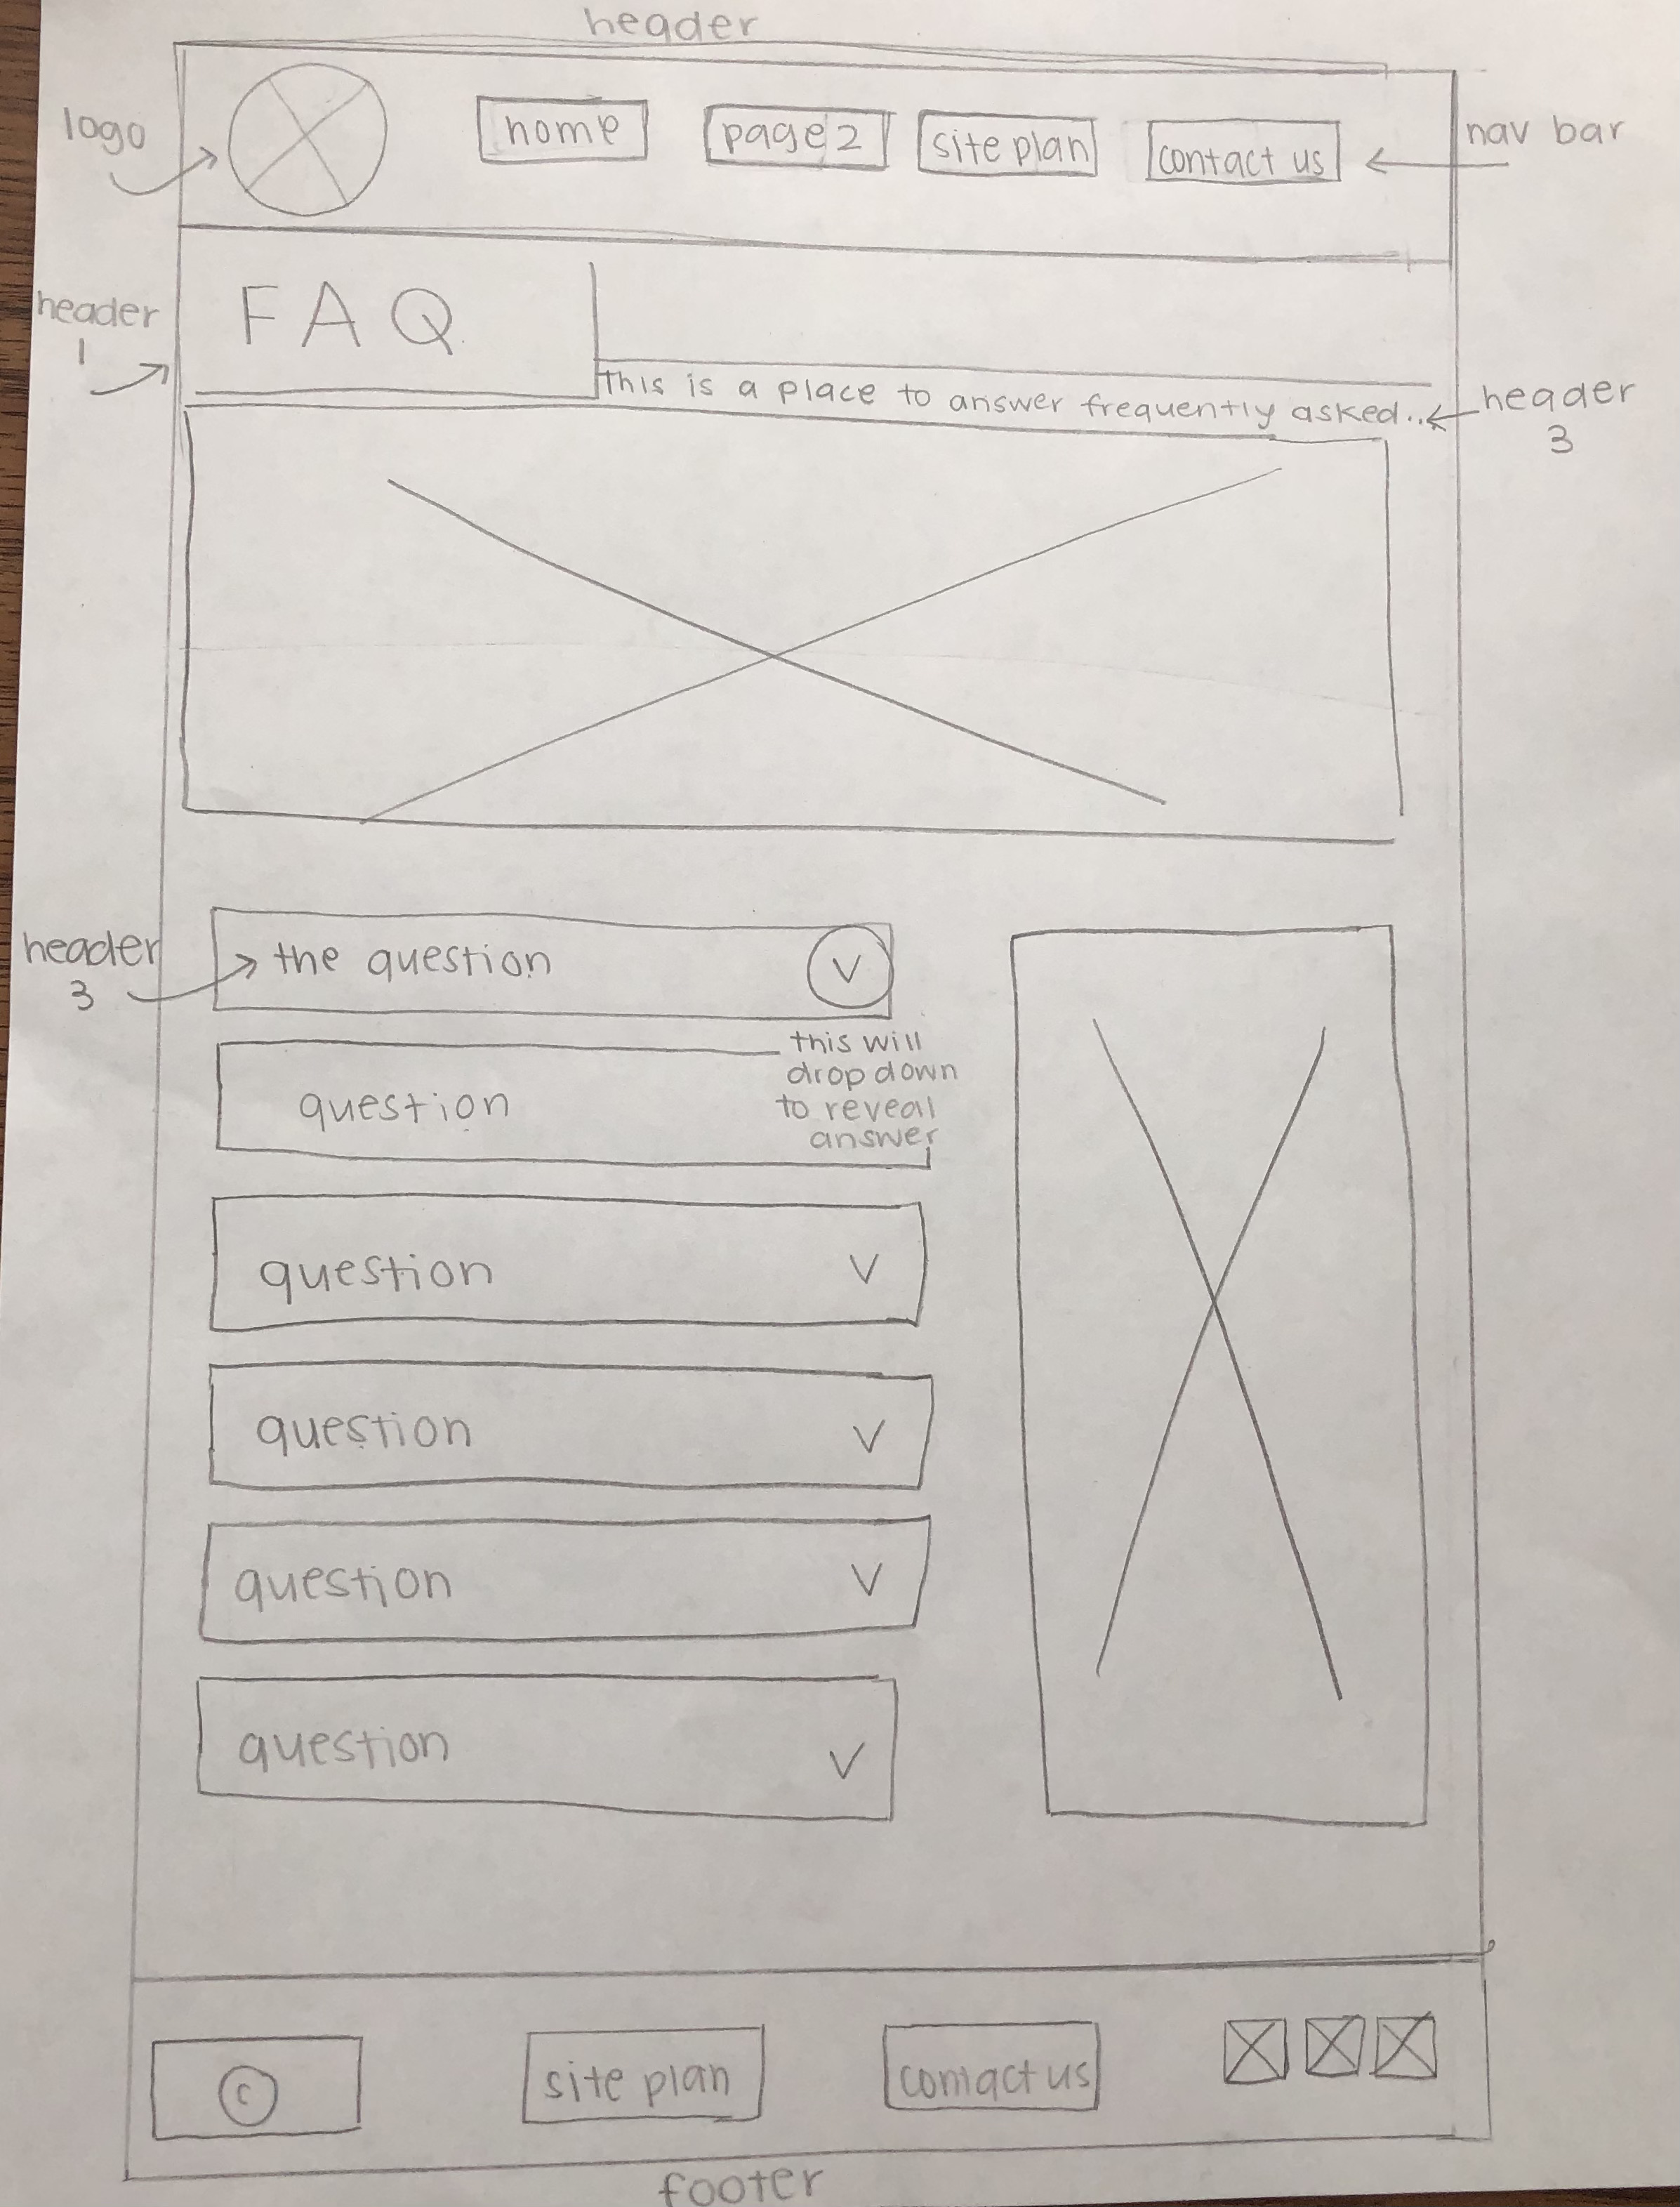 header
logo
home
page 2
site plan
contact us
nav bar
header
1
FAQ
This is a place to answer frequently asked...
header
3
header
3
the question
V
this will
drop down
to reveal
answer
question
question
V
question
V
question
V
question
V
©
site plan
contact us
footer